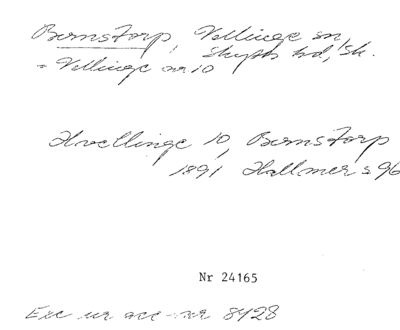 Bernstorp, Vellinge sn,
Skytts hd, Sk.
= Vellinge nr 10
Hvellinge 10, Bernstorp
1891 Hallmer s 96
Nr 24165
Exc ur acc-nr 8428